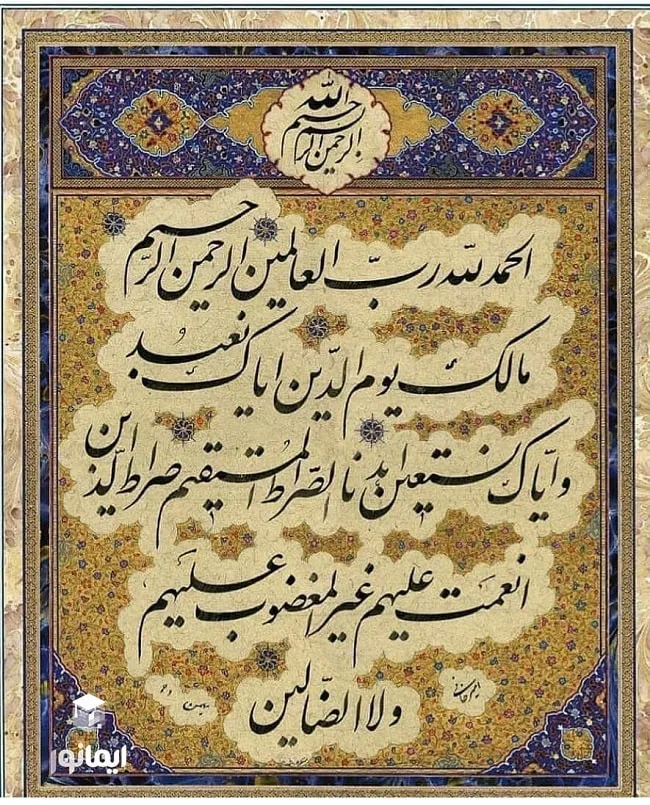 بسم الله الرحمن الرحیم
الحمد لله ربّ العالمین الرحمن الرّحیم
مالک یوم الدّین ایاک نعبد
و ایّاک نستعین اهدنا الصّراط المستقیم صراط الّذین
انعمت علیهم غیر المغضوب علیهم
ولا الضّالین
ایمانور